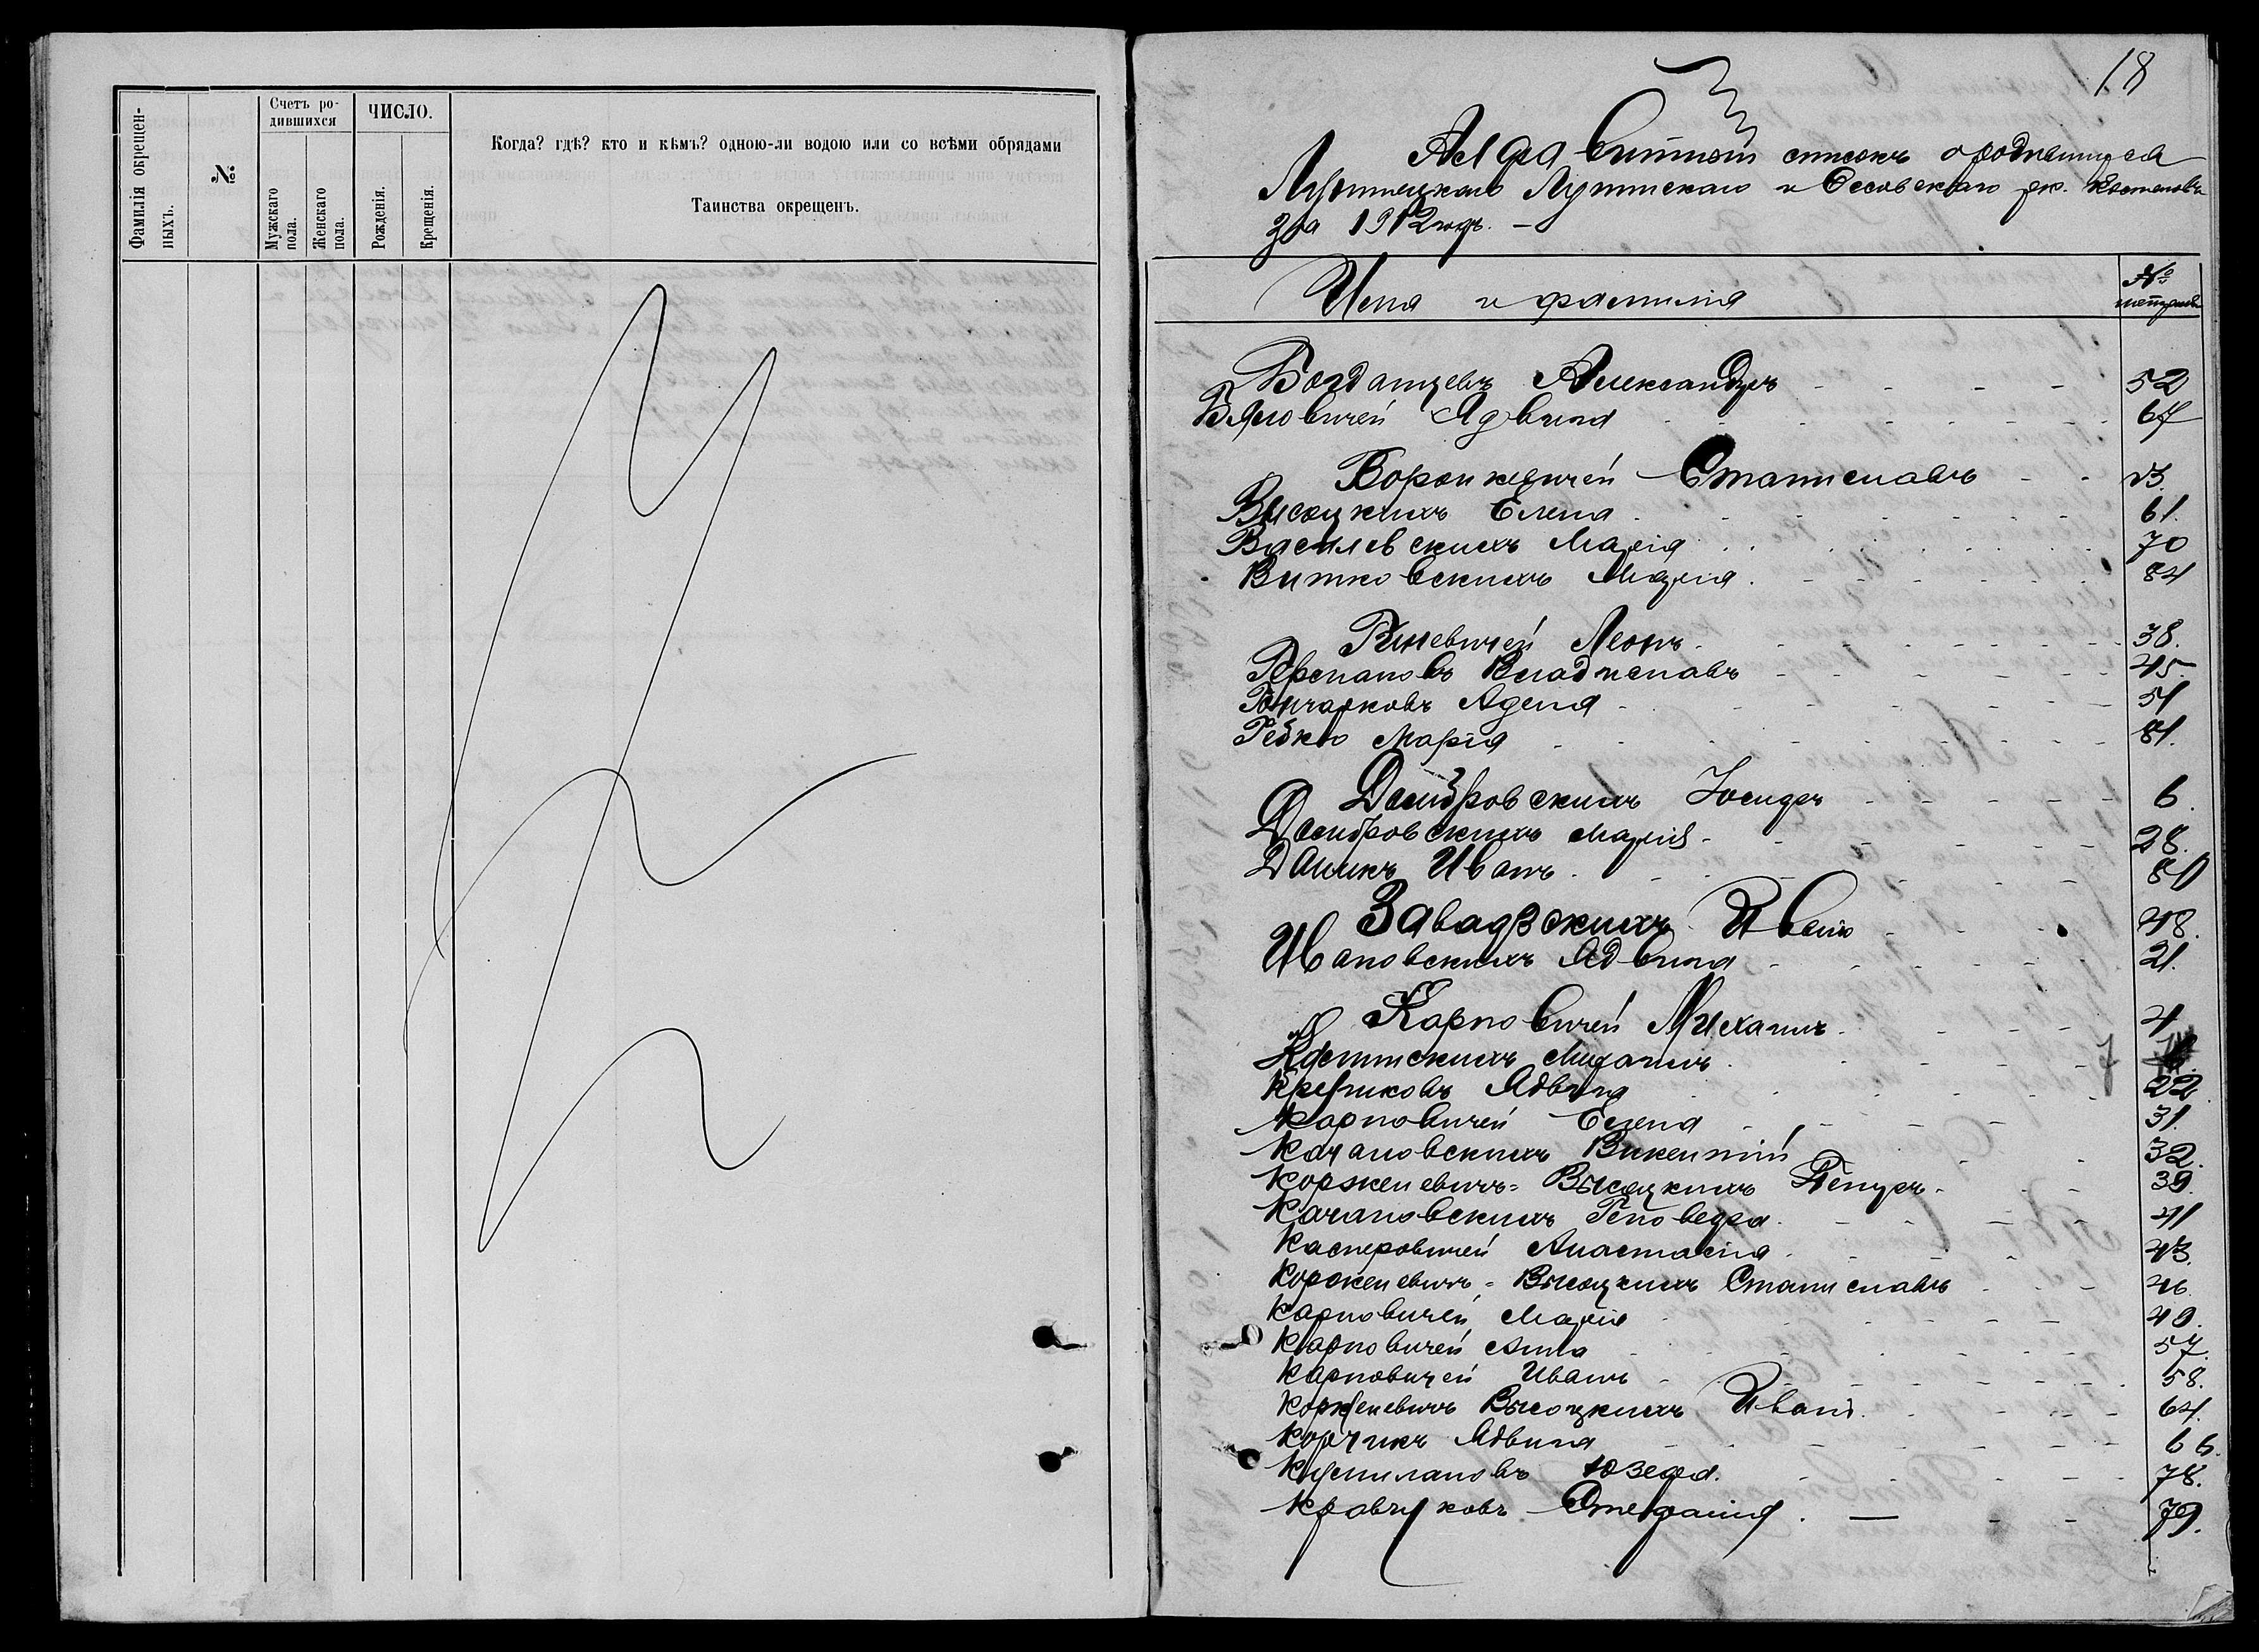 Фамилія окрещен-
ныхъ.
№
Счетъ ро-
дившихся
Мужскаго
пола.
Женскаго
пола.
ЧИСЛО.
Рожденія.
Крещенія.
Когда? гдѣ? кто и кѣмъ? одною-ли водою или со всѣми обрядами
Таинства окрещенъ.
18
Алфавитный списокъ о родившихся
и Оссовскаго рк. костеловъ
за 1912 годъ. –
Имя и фамилія
№
метрики
Богданцевъ Александръ 52
Адвина 67
Воронкевичей Станиславъ 23.
Высоцкихъ Елена 61.
Василевскихъ Марія 70
Витковскихъ Марія 84
Гиневичей Леонъ 38.
Германовъ Владиславъ 45.
Гончарковъ Аделя 54
Гебко Марія 81.
Домбровскихъ Іосифъ 6.
Домбровскихъ Марія 28.
Даникъ Иванъ 80
Завадзскихъ Иванъ 48.
Ивановскихъ Адвина 21.
Карповичей Михаилъ 4
Михаилъ 7
Адвина 22
Карповичей Елена 31.
Качановскихъ Викентій 32.
Корженевичъ-Высоцкихъ Петръ 39.
Качановскихъ Геноведра 41
Касперовичей Анастасія 43.
Корженевичъ-Высоцкихъ Станиславъ 46.
Карповичей Марія 49.
Карповичей Анна 57.
Карповичей Иванъ 58.
Корженевичъ Высоцкихъ Иванъ 64.
Корчикъ Адвина 66.
Юзефа 78.
Кравчуковъ Стефанія 79.